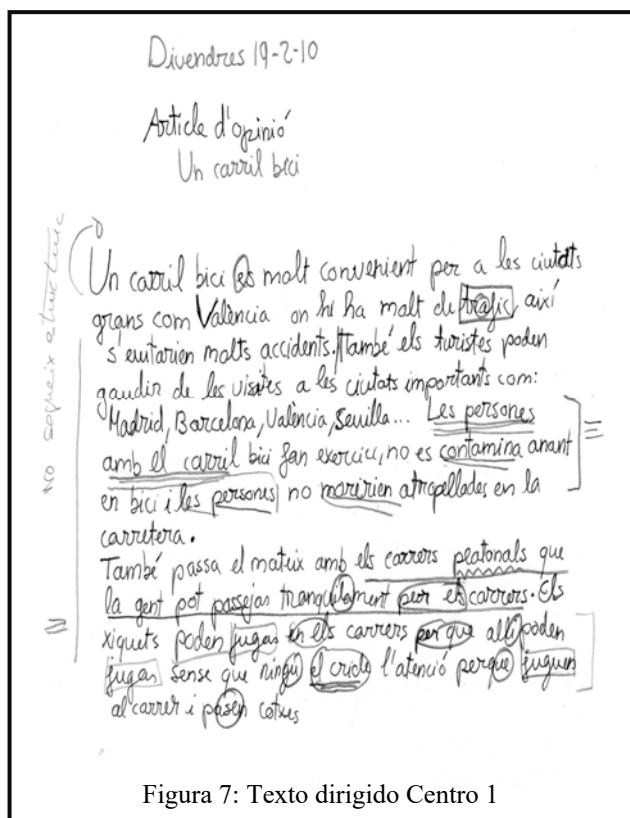 Divendres 19-2-10
Article d'opinió
Un carril bici
No segueix estructura
Un carril bici es molt convenient per a les ciutats
grans com València on hi ha molt de trafic, així
s'evitarien molts accidents. També els turistes poden
gaudir de les visites a les ciutats importants com:
Madrid, Barcelona, València, Sevilla... Les persones
amb el carril bici fan exercici, no es contamina anant
en bici i les persones no moririen atropellades en la
carretera.
També passa el mateix amb els carrers peatonals que
la gent pot passejar tranquilament per els carrers. Els
xiquets poden jugar en els carrers per que alli poden
jugar sense que ningú el cride l'atenció perque juguen
al carrer i pasen cotxes
Figura 7: Texto dirigido Centro 1